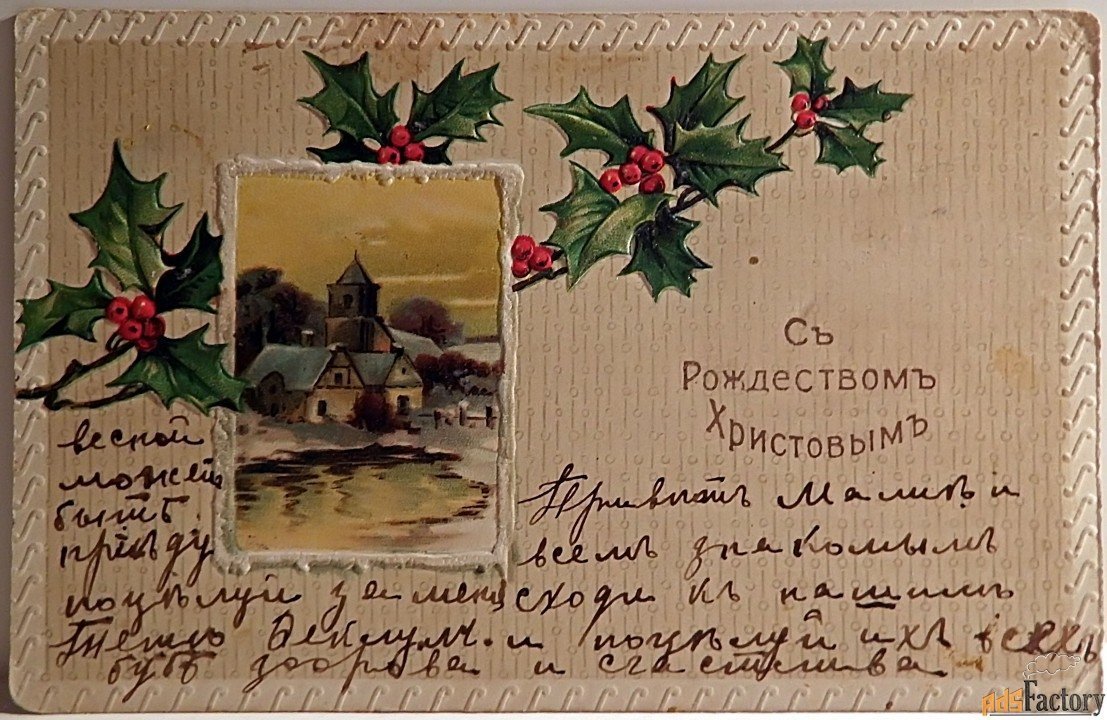 Съ
Рождествомъ
Христовымъ
весной
можетъ
быть
пріѣду
Привѣтъ Малинѣ и
всемъ знакомымъ
поцѣлуй за меня сходи къ нашимъ
и поцѣлуй ихъ всехъ
будь здорова и счастлива
AdsFactory